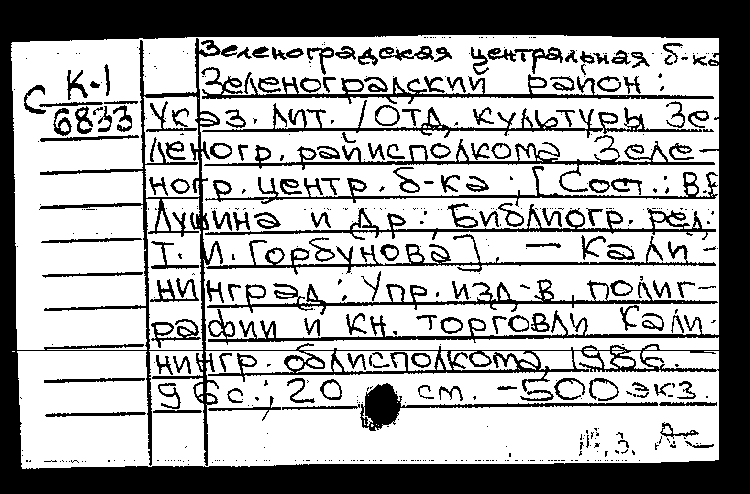 Зеленоградская центральная б-ка
К-1
Зеленоградский район:
С
6833
Указ. лит. / Отд. культуры Зе-
леногр. райисполкома, Зеле-
ногр. центр. б-ка ; [Сост.: В.Е
Лушина и др.; Библиогр. ред.
Т. И. Горбунова]. — Кали-
нинград : Упр. изд-в, полиг-
рафии и кн. торговли Кали-
нингр. облисполкома, 1986. —
96 с.; 20 см. — 500 экз.